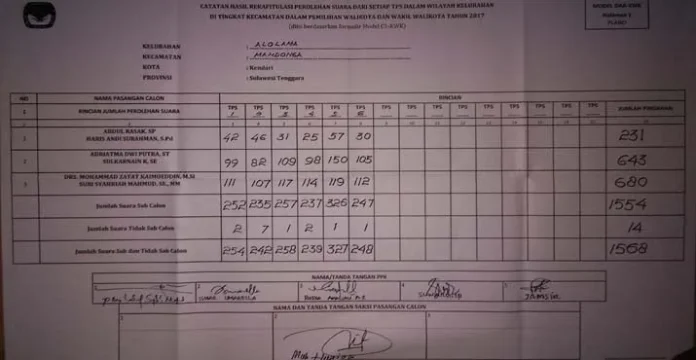 CATATAN HASIL REKAPITULASI PEROLEHAN SUARA DARI SETIAP TPS DALAM WILAYAH KELURAHAN
DI TINGKAT KECAMATAN DALAM PEMILIHAN WALIKOTA DAN WAKIL WALIKOTA TAHUN 2017
KELURAHAN : ALOLAMA
KECAMATAN : MANDONGA
KOTA : Kendari
PROVINSI : Sulawesi Tenggara
NO NAMA PASANGAN CALON RINCIAN
1 RINCIAN JUMLAH PEROLEHAN SUARA TPS 1 TPS 2 TPS 3 TPS 4 TPS 5 TPS 6 TPS TPS TPS TPS TPS TPS TPS TPS JUMLAH PINDAHAN
1 ABDUL RASAK, SP
HARIS ANDI SURAHMAN, S.Pd 42 46 31 25 57 30 231
2 ADRIATMA DWI PUTRA, ST
SULKARNAIN K, SE 99 82 109 98 150 105 643
3 DRS. MOHAMMAD ZAYAT KAIMOEDDIN, M.Si
SURI SYAHRIAH MAHMUD, SE, MM 111 107 117 114 119 112 680
Jumlah Suara Sah Calon 252 235 257 237 326 247 1554
Jumlah Suara Tidak Sah Calon 2 7 1 2 1 1 14
Jumlah Suara Sah dan Tidak Sah Calon 254 242 258 239 327 248 1568
NAMA/TANDA TANGAN PPK
1 2 3 4 5
NAMA DAN TANDA TANGAN SAKSI PASANGAN CALON
1 2 3